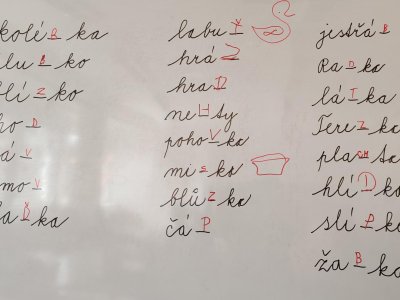 koléBka
luBko
líZko
labuŤ
hráZ
hraD
neHty
pohoVka
miska
blůZka
čáP
jestřáB
láTka
TereZka
plaCHta
hlíDk
slíPk
žaBka